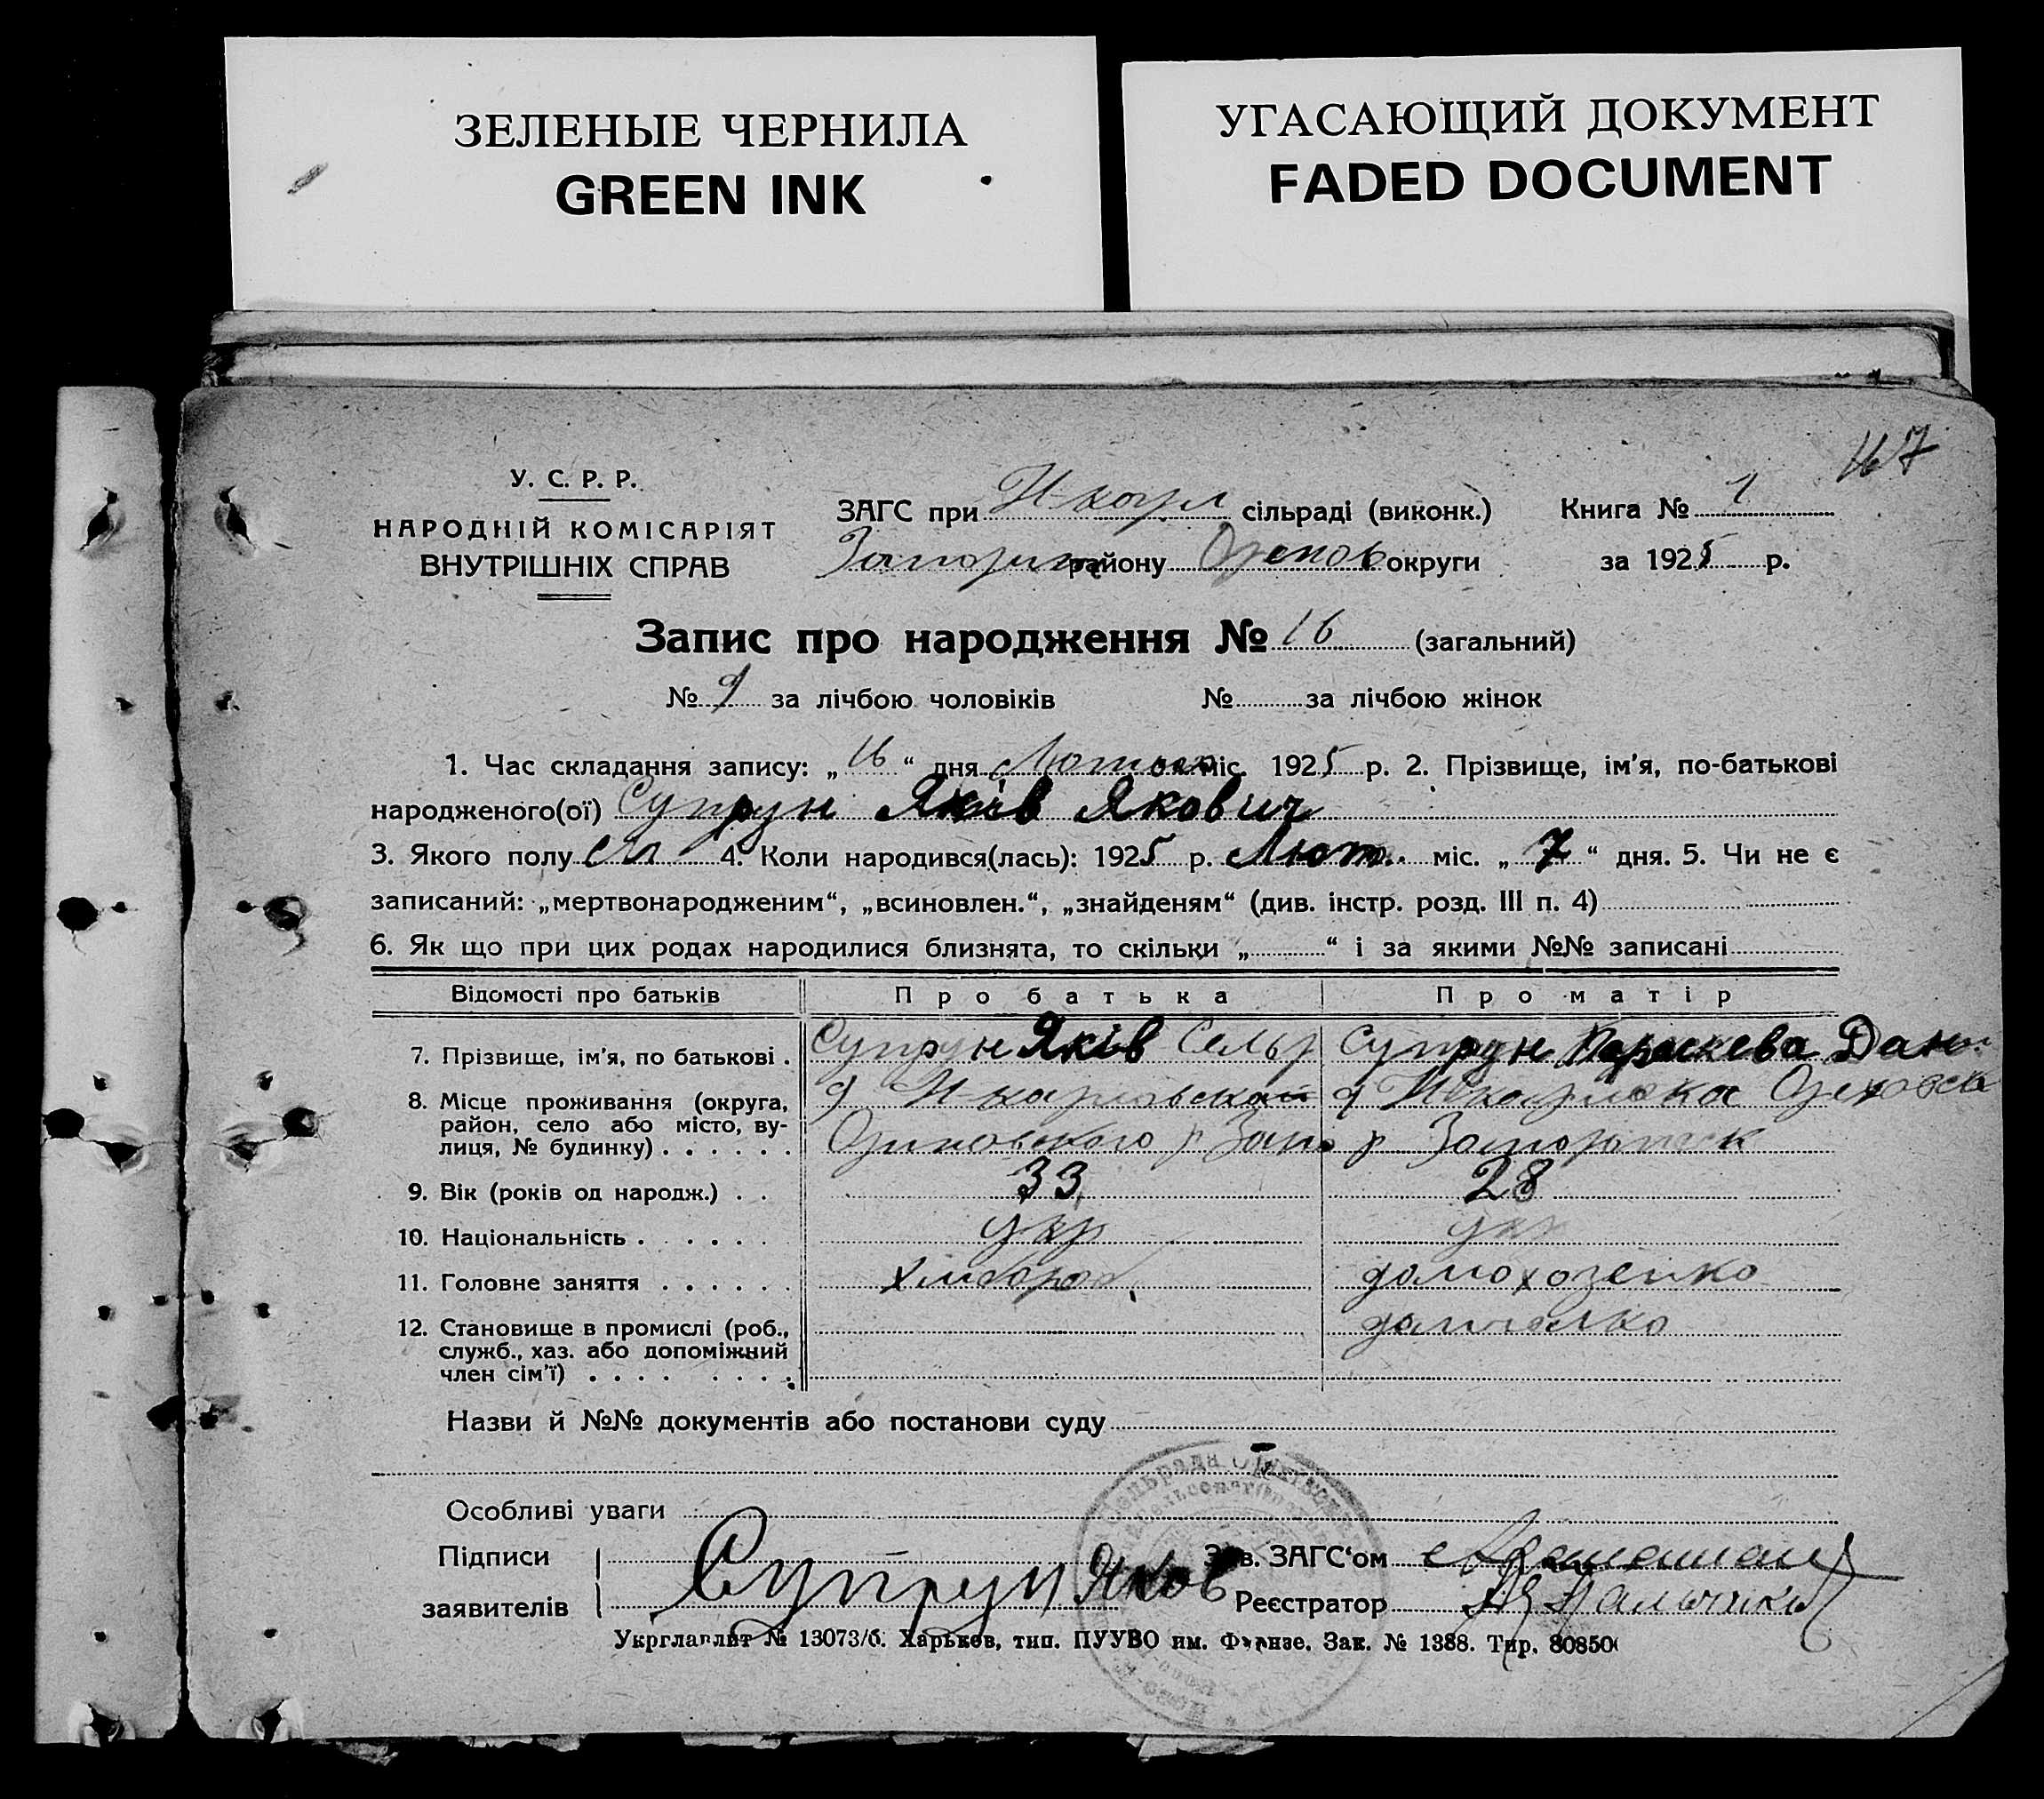 ЗЕЛЕНЫЕ ЧЕРНИЛА
GREEN INK
УГАСАЮЩИЙ ДОКУМЕНТ
FADED DOCUMENT
У. С. Р. Р.
НАРОДНІЙ КОМІСАРІЯТ
ВНУТРІШНІХ СПРАВ
ЗАГС при Н-карл сільраді (виконк.)
району округи
Книга № 1
за 1925 р.
Запис про народження № 16 (загальний)
№ 9 за лічбою чоловіків № за лічбою жінок
1. Час складання запису: „16“ дня Лютого міс. 1925 р. 2. Прізвище, ім'я, по-батькові
народженого(ої) Супрун Яків Якович
3. Якого полу 4. Коли народився(лась): 1925 р. Лют. міс. „7“ дня. 5. Чи не є
записаний: „мертвонародженим“, „всиновлен.“, „знайденям“ (див. інстр. розд. III п. 4)
6. Як що при цих родах народилися близнята, то скільки „ “ і за якими №№ записані
Відомості про батьків Про батька Про матір
7. Прізвище, ім'я, по батькові . Супрун Яків Супрун Параскева Дани
8. Місце проживання (округа,
район, село або місто, ву-
лиця, № будинку) . . . . . .
9. Вік (років од народж.) . . 33 28
10. Національність . . . . . укр укр
11. Головне заняття . . . . . . хлібороб домохозейко
12. Становище в промислі (роб.,
служб., хаз. або допоміжний
член сім'ї) . . . . . . . .
Назви й №№ документів або постанови суду
Особливі уваги
Підписи
заявителів
Супрун Яков
Зав. ЗАГС'ом
Реєстратор
Укрглавліт № 13073/б. Харьков, тип. ПУУВО им. Фрунзе. Зак. № 1388. Тир. 80850